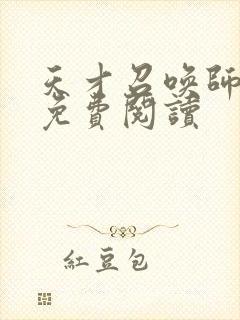 天才召喚師
免費閱讀
紅豆包